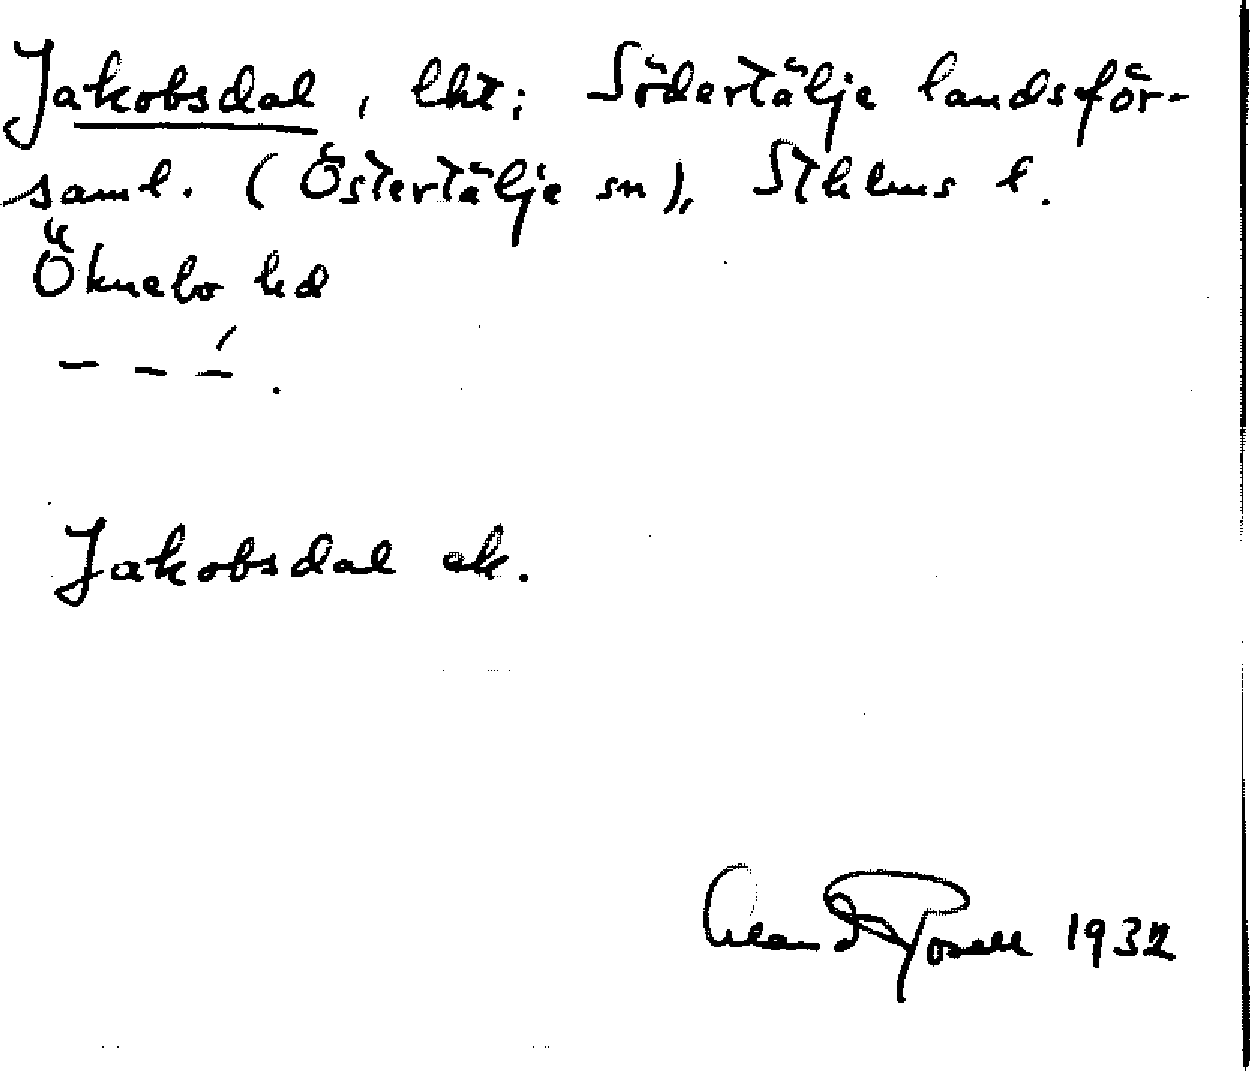 Jakobsdal, lht; Södertälje landsför-
saml. (Östertälje sn), Sthlms l.
Öknebo hd
— — —́.
Jakobsdal ek.
1932